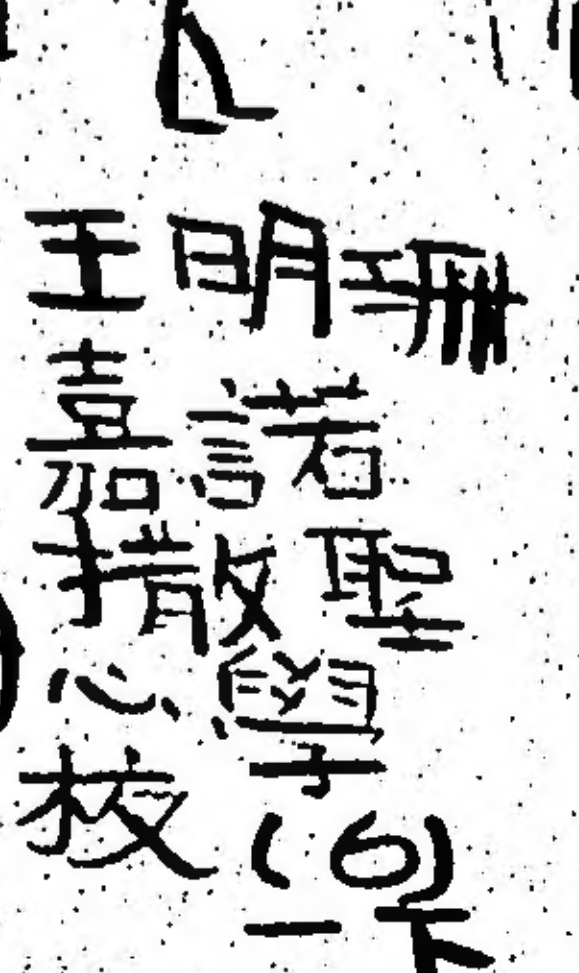 王明珊
嘉諾
撒聖
心學
校(6)
一下